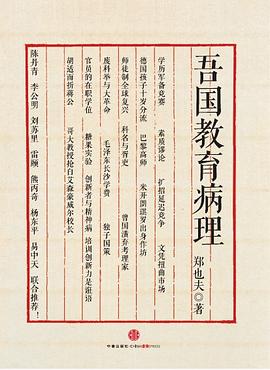 吾国教育病理
郑也夫◎著
学历军备竞赛 素质谬论 扩招延迟竞争 文凭扭曲市场
德国孩子十岁分流 巴黎高师 米开朗琪罗出身作坊
师徒制全球复兴 科名与胥吏 曾国藩弃考理家
废科举与大革命 毛泽东长沙学费 独子国策
官员的在职学位 糖果实验 创新者与精神病 培训创新力是诳语
胡适面折蒋公 哥大教授抢白艾森豪威尔校长
陈丹青 李公明 刘苏里 雷颐 熊丙奇 杨东平 易中天 联合推荐！
中信出版社